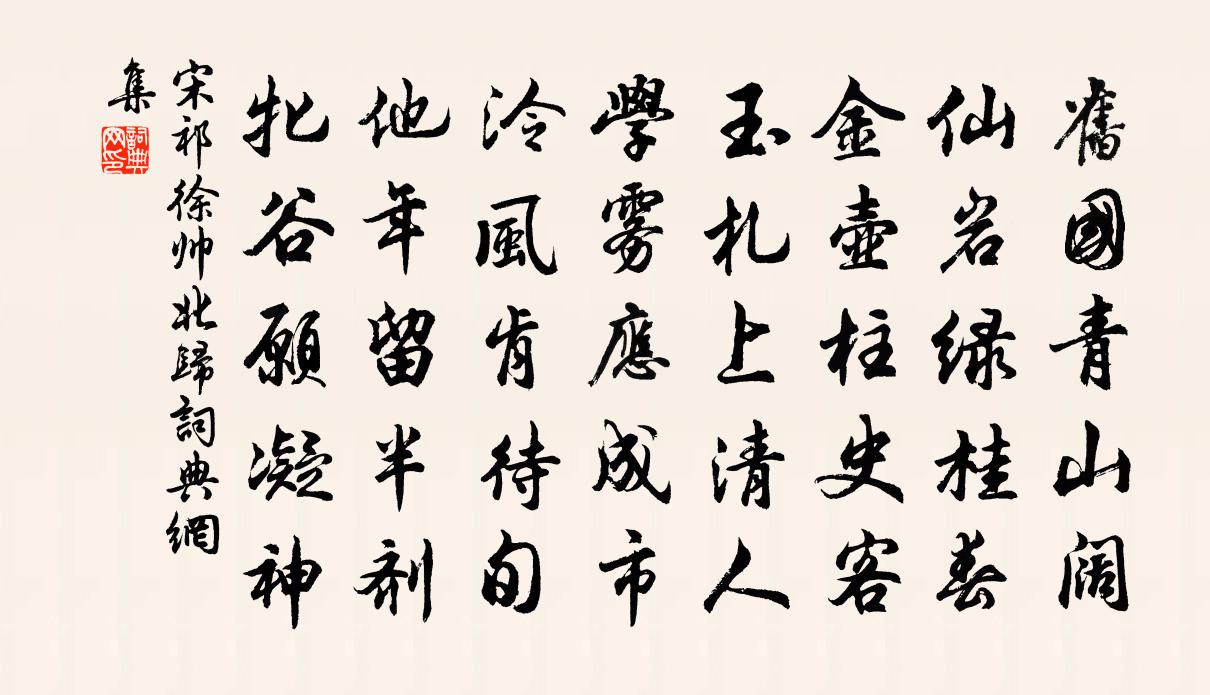 舊國青山闊
仙岩緑桂春
金壺柱史客
玉札上清人
學霧應成市
泠風肯待旬
他年留半劑
牝谷願凝神
宋祁徐帅北歸詞典網
集
詞典网印